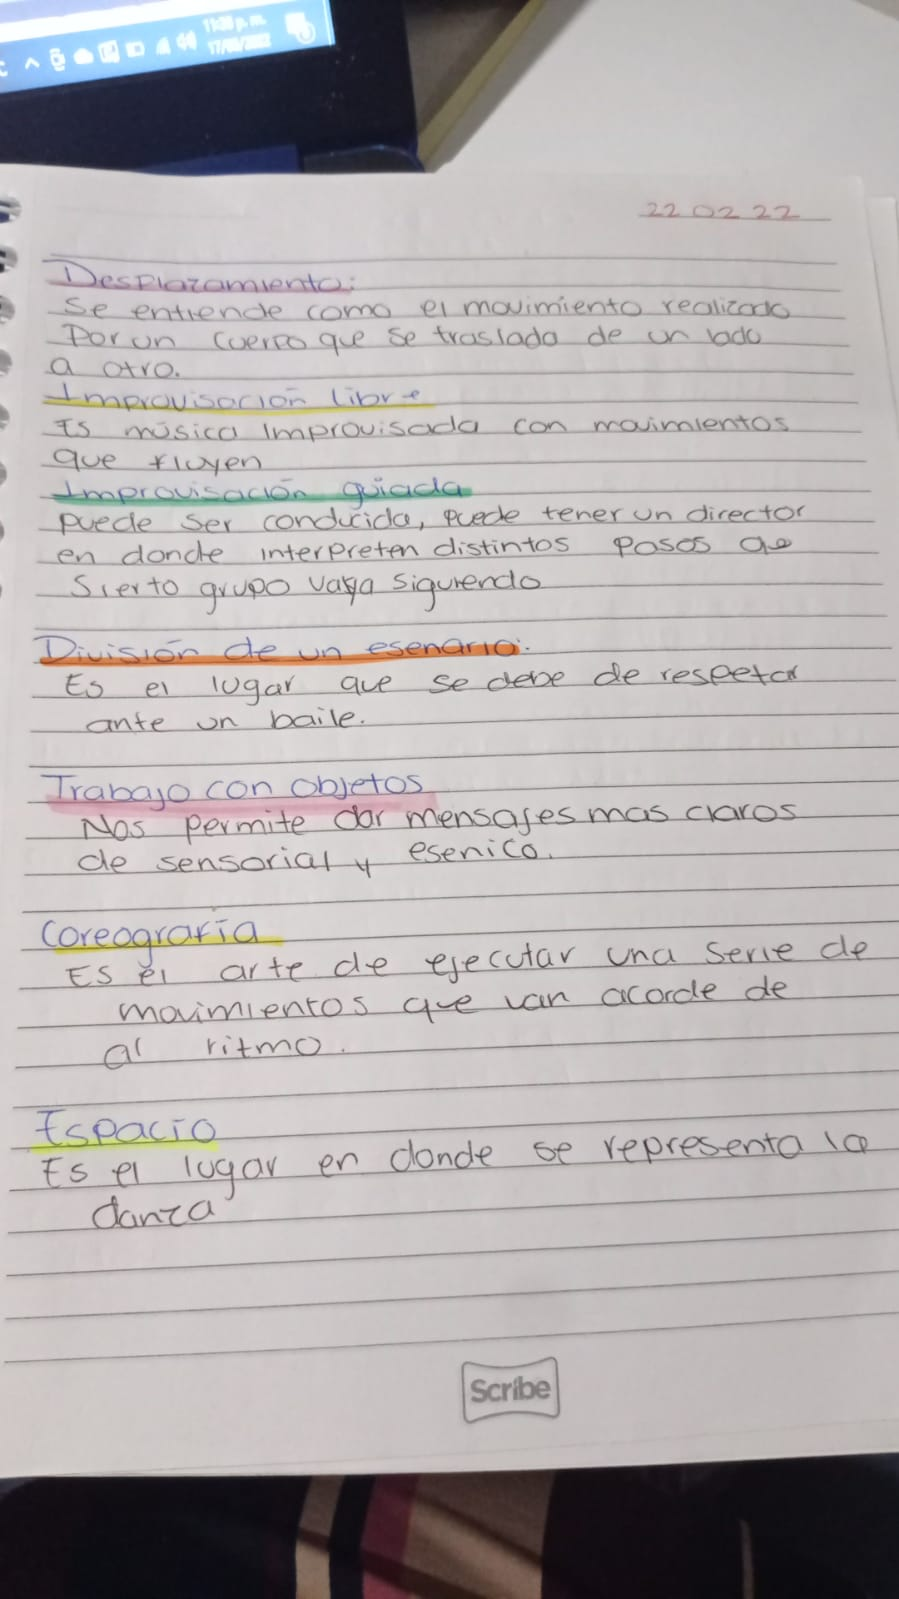 11:38 p. m.
22 02 22
Desplazamiento:
Se entiende como el movimiento realizado
Por un cuerpo que se traslada de un lado
a otro.
Improvisación libre
Es música improvisada con movimientos
que fluyen
Improvisación guiada
puede ser conducida, puede tener un director
en donde interpreten distintos pasos que
Sierto grupo vaya siguiendo
División de un esenario:
Es el lugar que se debe de respetar
ante un baile.
Trabajo con objetos
Nos permite dar mensajes mas claros
de sensorial y esenico.
Coreografía
Es el arte de ejecutar una serie de
movimientos que van acorde de
al ritmo.
Espacio
Es el lugar en donde se representa la
danza
Scribe